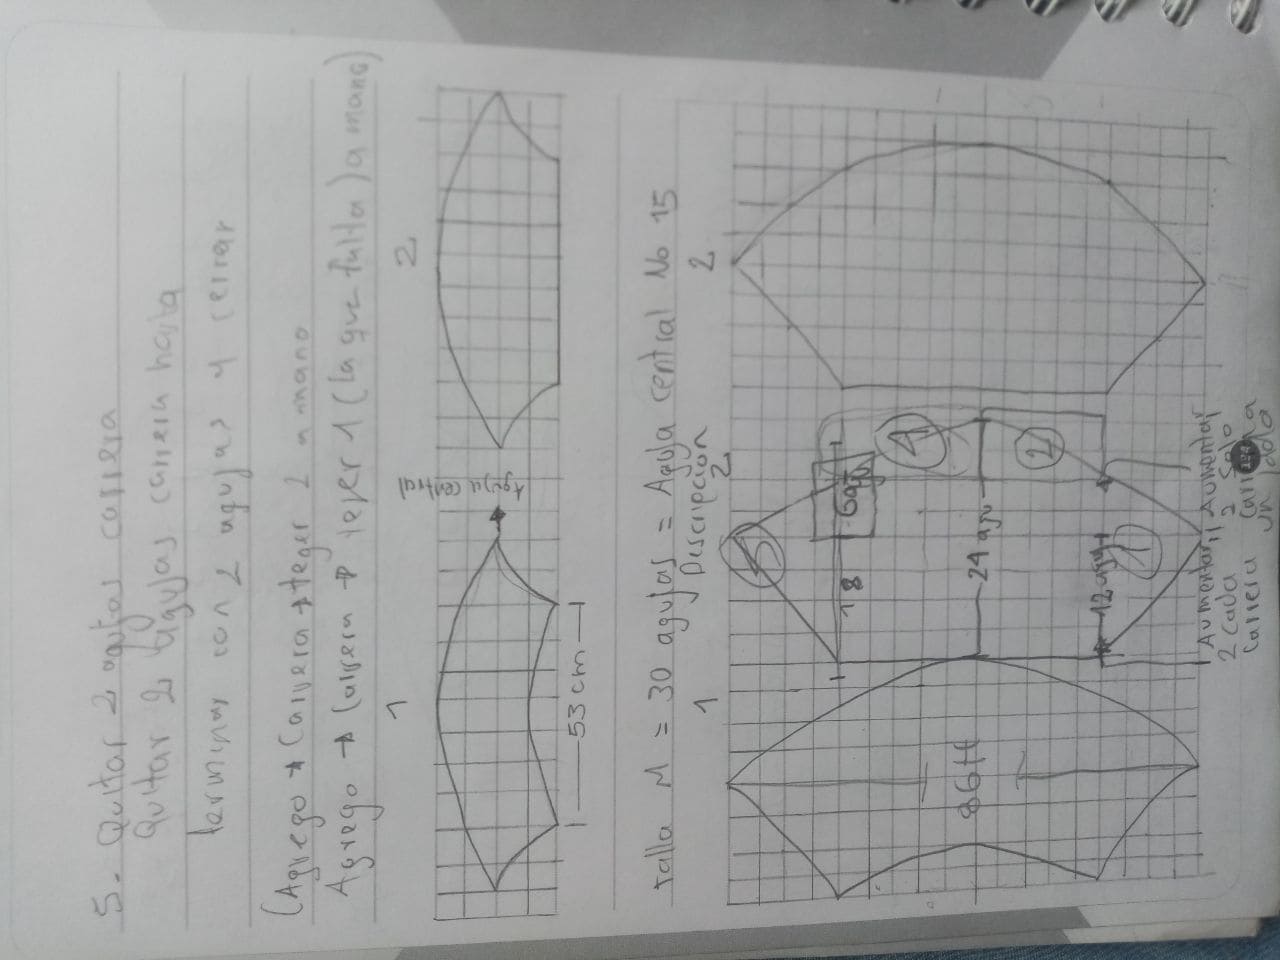 5.- Quitar 2 agujas carrera
Quitar 2 agujas carrera hasta
terminar con 2 agujas y cerrar
(Agrego → Carrera → teger 2 a mano
Agrego → Carrera → tejer 1 (la que falta) a mano)
1
2
Aguja central
53 cm
talla M = 30 agujas = Aguja central No 15
Descripción
1
2
2
86
5
6 aguj
18
4
24 agu
2
12 aguj
1
Aumentar
2 cada
carrera
Aumentar
2 solo
carrera
un lado